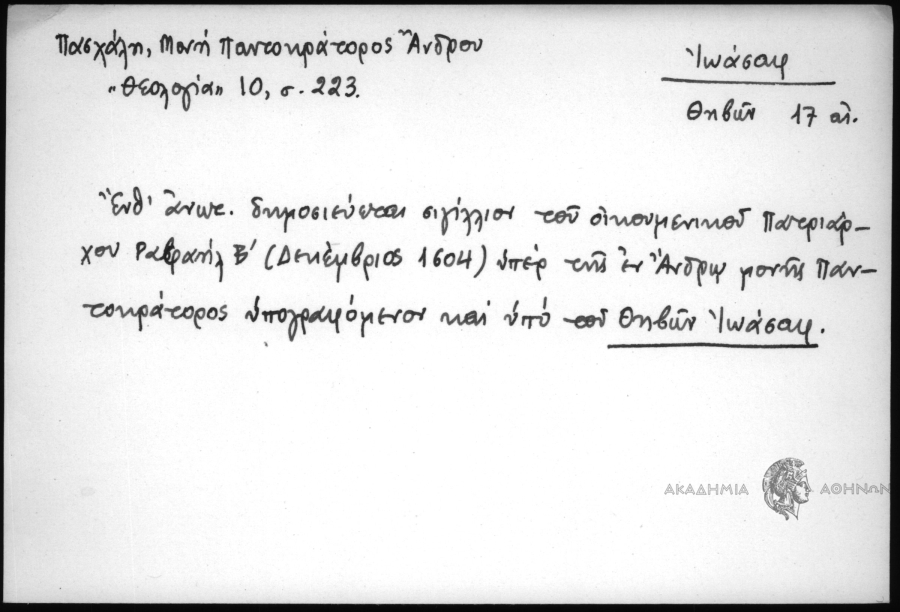 Πασχάλη, Μονή Παντοκράτορος Ἄνδρου
«Θεολογία» 10, σ. 223.
Ἰωάσαφ
Θηβῶν 17 αἰ.
Ἔνθ' ἄνωτ. δημοσιεύεται σιγίλλιον τοῦ οἰκουμενικοῦ Πατριάρ-
χου Ραφαήλ Β' (Δεκέμβριος 1604) ὑπέρ τῆς ἐν Ἄνδρῳ μονῆς Παν-
τοκράτορος ὑπογραφόμενον καί ὑπό τοῦ Θηβῶν Ἰωάσαφ.
ΑΚΑΔΗΜΙΑ ΑΘΗΝΩΝ